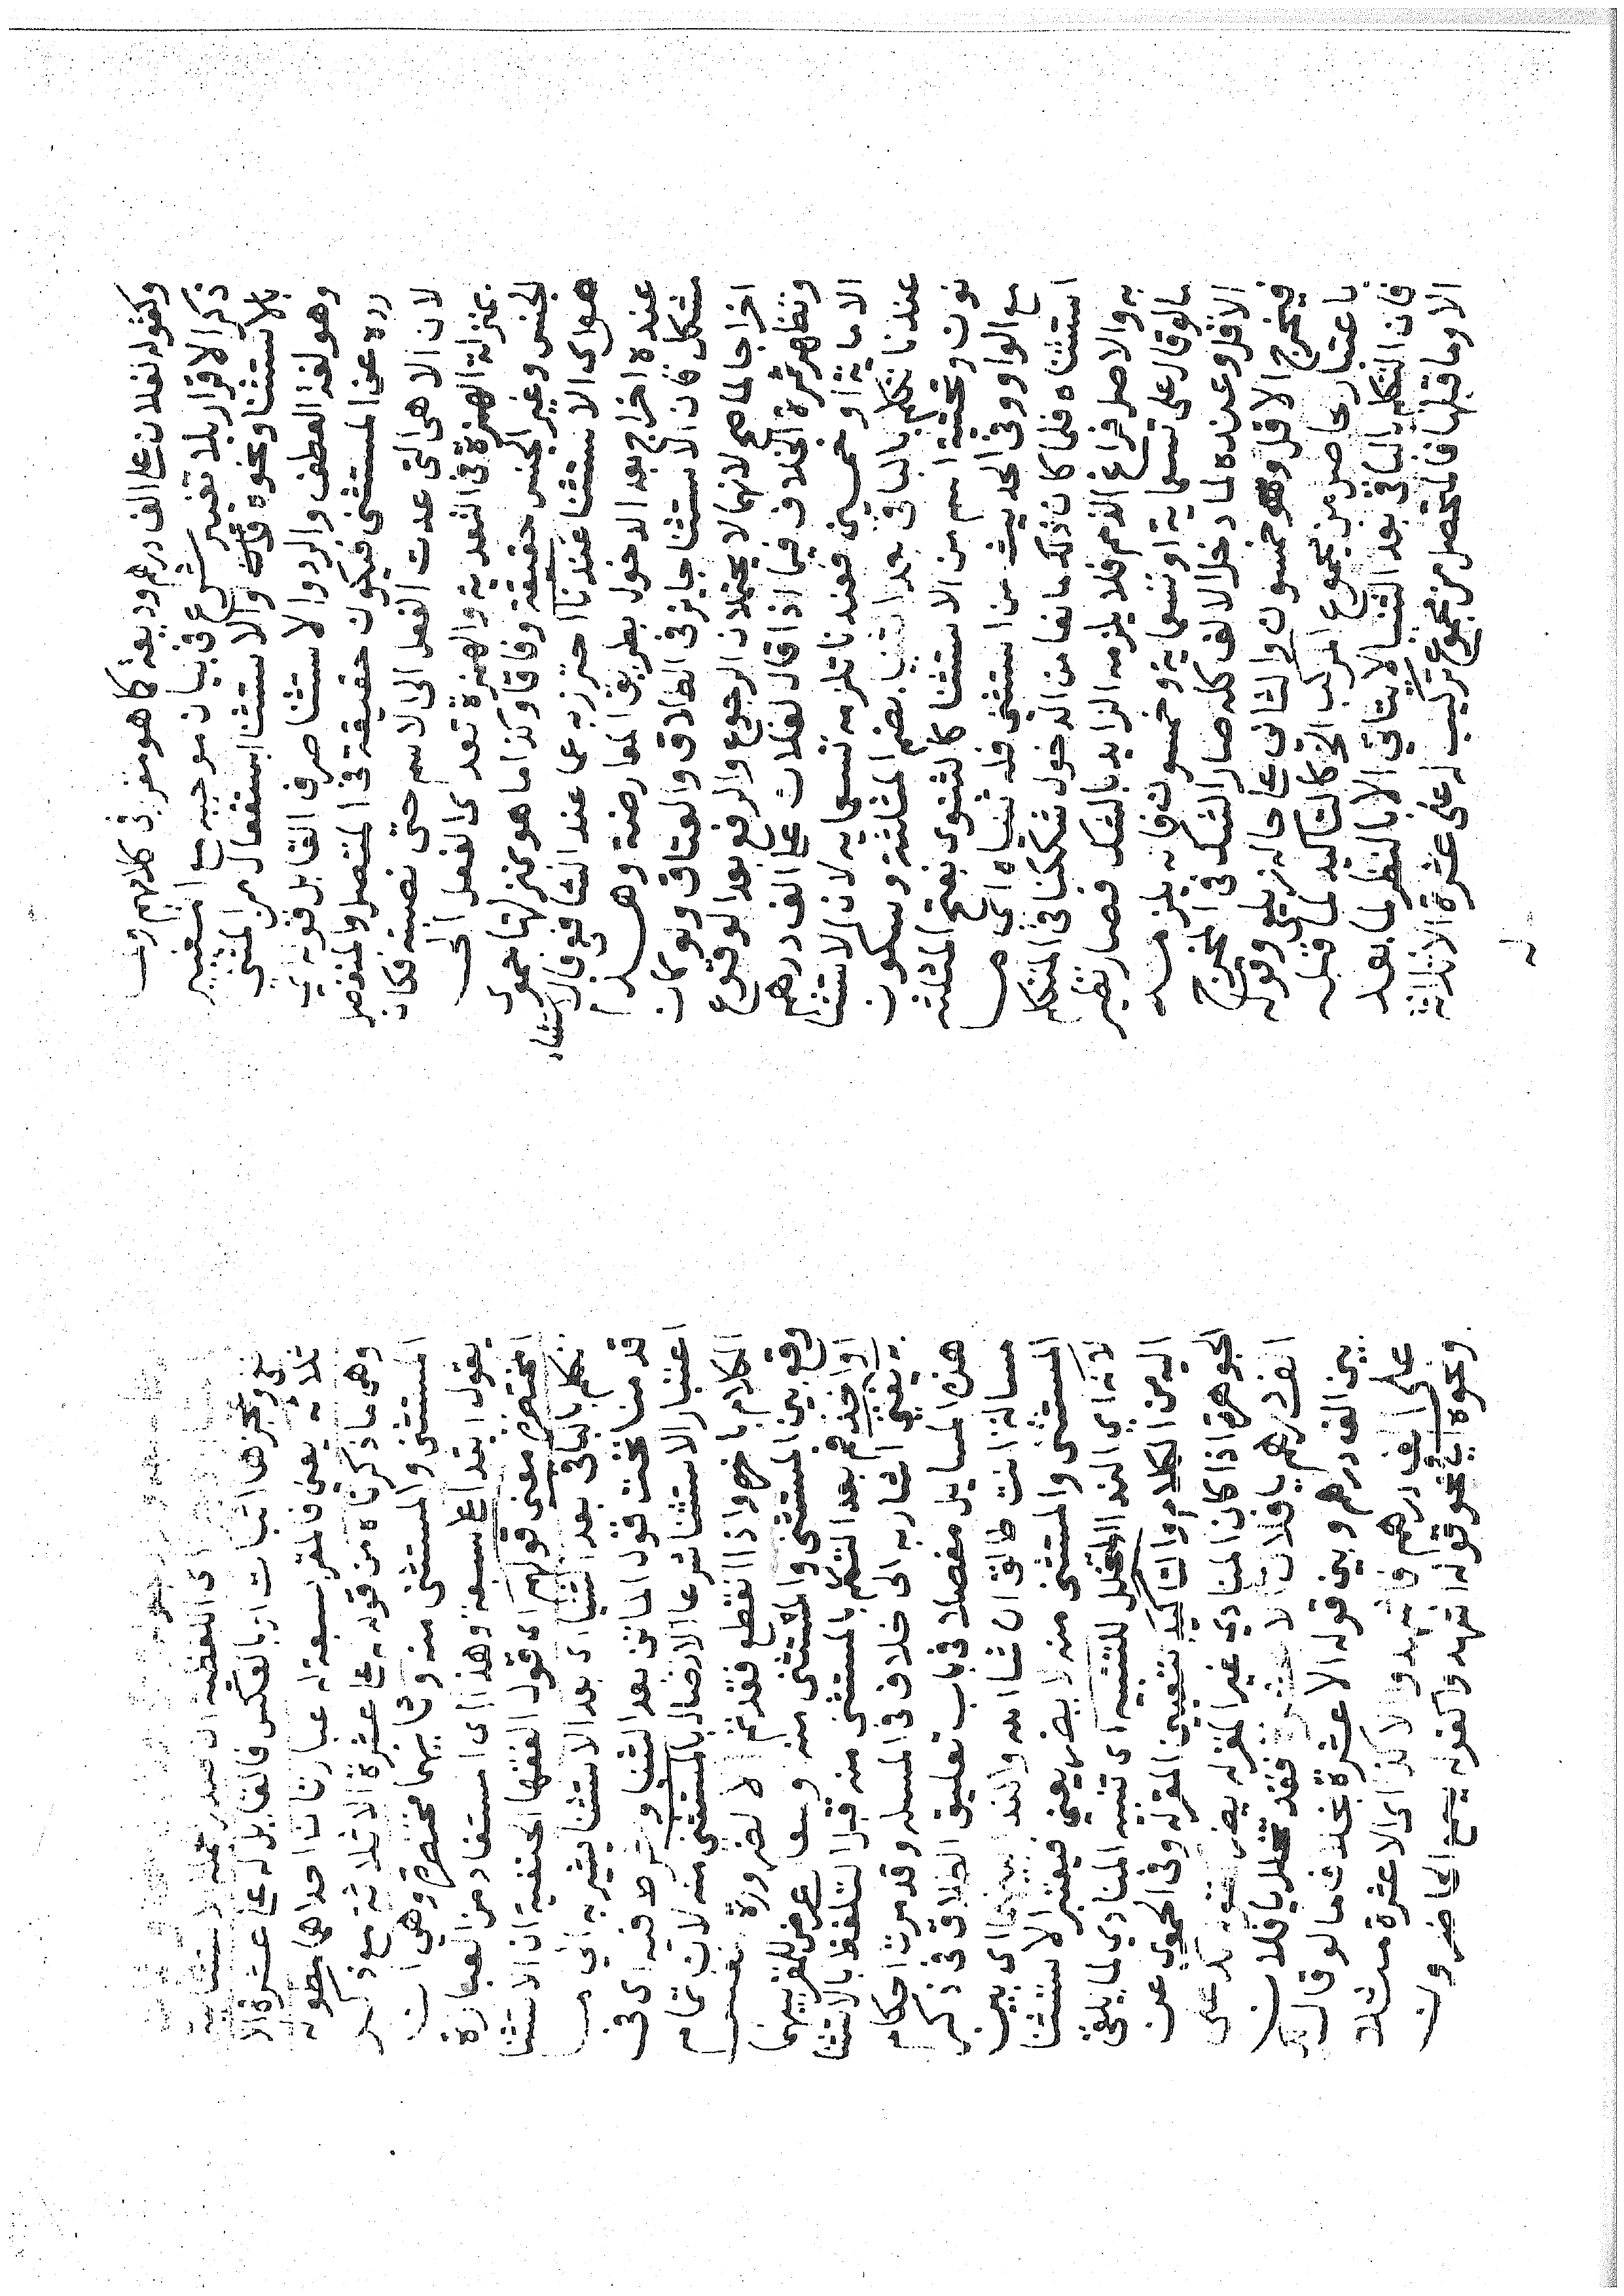 وكقوله لفلان علي الف درهم وديعة كما هو مقرر في كلامهم
ذكر الاقرار بلا تغيير شرع في بيان موجبه مع المغيير
بالاستثنا ونحوه والاستثنا استفعال من الثني
وهو لغة العطف والرد والاستثنا صرف القابل قوله اي
رده عن المستثنى فيكون حقيقة في المتصل والمنفصل
لان الا هي التي عدت الفعل الى الاسم حتى نصبته فكانت
بمنزلة الهمزة في التعدية والهمزة تعدى الفعل الى
الجنس وغير الجنس حقيقة وفاقا وكذا ما هو بمنزلتها حموى
هو اي الاستثنا عندنا احترز به عما عند الشافعى فان الاستثناء
عنده اخراج بعد الدخول بطريق المعارضة وهـــذا
مشكل فان الاستثنا جايز في الطلاق والعتاق ولو كان
اخراجا لما صح لانهما لا يحتملان الرجوع والرفع بعد الوقوع
وتظهر ثمرة الخلاف فيما اذا قال لفلان علي الف درهم
الا ماية او خمسين فعندنا تلزمه تسعماية لان الاستثنا
عندنا تكلم بالباقي بعد الثنيا بضم المثلثة وسكون
نون وتحتية اسم من الاستثنا كالثنوى بفتح المثلثة
مع الواو وفي الحديث من استثنى فله ثنياه اي ما
استثناه فلما كان ذلك مانعا من الدخول شككنا في المتكلم
به والاصل فراغ الذمم فلا يلزمه الزايد بالشك فصار نظير
ما لو قال علي تسعماية او تسعماية وخمسون فانه يلزمه
الاقل وعنده لما دخل الالف كله صار الشك في المخرج
فيخرج الاقل وهو خمسون والثاني على حاله زيلعى وقوله
باعتبار الحاصل من مجموع المركب الخ كالتاكيد لما قبله
فان التكلم بالباقي بعد الثنيا لا يتأتى الا بالنظر لما بعد
الا وما قبلها فالمتحصل من مجموع تركيب له على عشرة الا ثلاثة
له
نفي وعجزها اثبات او بالعكس فالقايل له علي عشرة الا
ثلاثة يعني فالمقر بسبعة له عبارتان احداهما مطوله
وهي ما ذكرناه من قوله علي عشرة الا ثلاثة مع ذكر
المستثنى والمستثنى منه وثانيهما مختصرة وهي ان
يقول ابتدا علي سبعة وهذا اي المستفاد من العبارة
المختصرة معنى قولهم اي قول الفقها الحنفية ان الاستثنا
تكلم بالباقي بعد الثنيا اي بعد الاستثنا يشير به الى ما
قدمناه تحت قول الماتن بعد الثنيا وشرط فيه اي في
اعتبار الاستثنا شرعا الاتصال بالمستثنى منه لان تمام
الكلام باخره واذا انقطع فقد تم الا لضرورة كنفس
وقع بين المستثنى والمستثنى منه وسعال عرض للمقر بينهما
او اخذ فم بعد التكلم بالمستثنى منه قبل التلفظ بالاستثنا
به يفتى اشار به الى خلاف في المسيلة وقد مرت احكام
هذه المسايل مفصلا في باب تعليق الطلاق في ذكر
مسالة انت طالق ان شا الله والندا بينهما اي بين
المستثنى والمستثنى منه لا يضر يعني فيعتبر الاستثنا
لانه اي الندا المتخلل للتنبيه اي تنبيه المنادي لما يلقى
اليه من الكلام والتاكيد بتعيين المقر له وفي الحموي عن
الجوهرة اذا كان المنادي غير المقر له يضر كقوله لك علي
الف درهم يا فلان الا عشرة فقد تخلل يا فلان
بين الف درهم وبين قوله الا عشرة بخلاف ما لو قال لك
على الف درهم فاشهدوا الا كذا اي الا عشرة مثلا
ونحوه اي نحو قوله اشهدوا كقوله يسمع الحاضرون